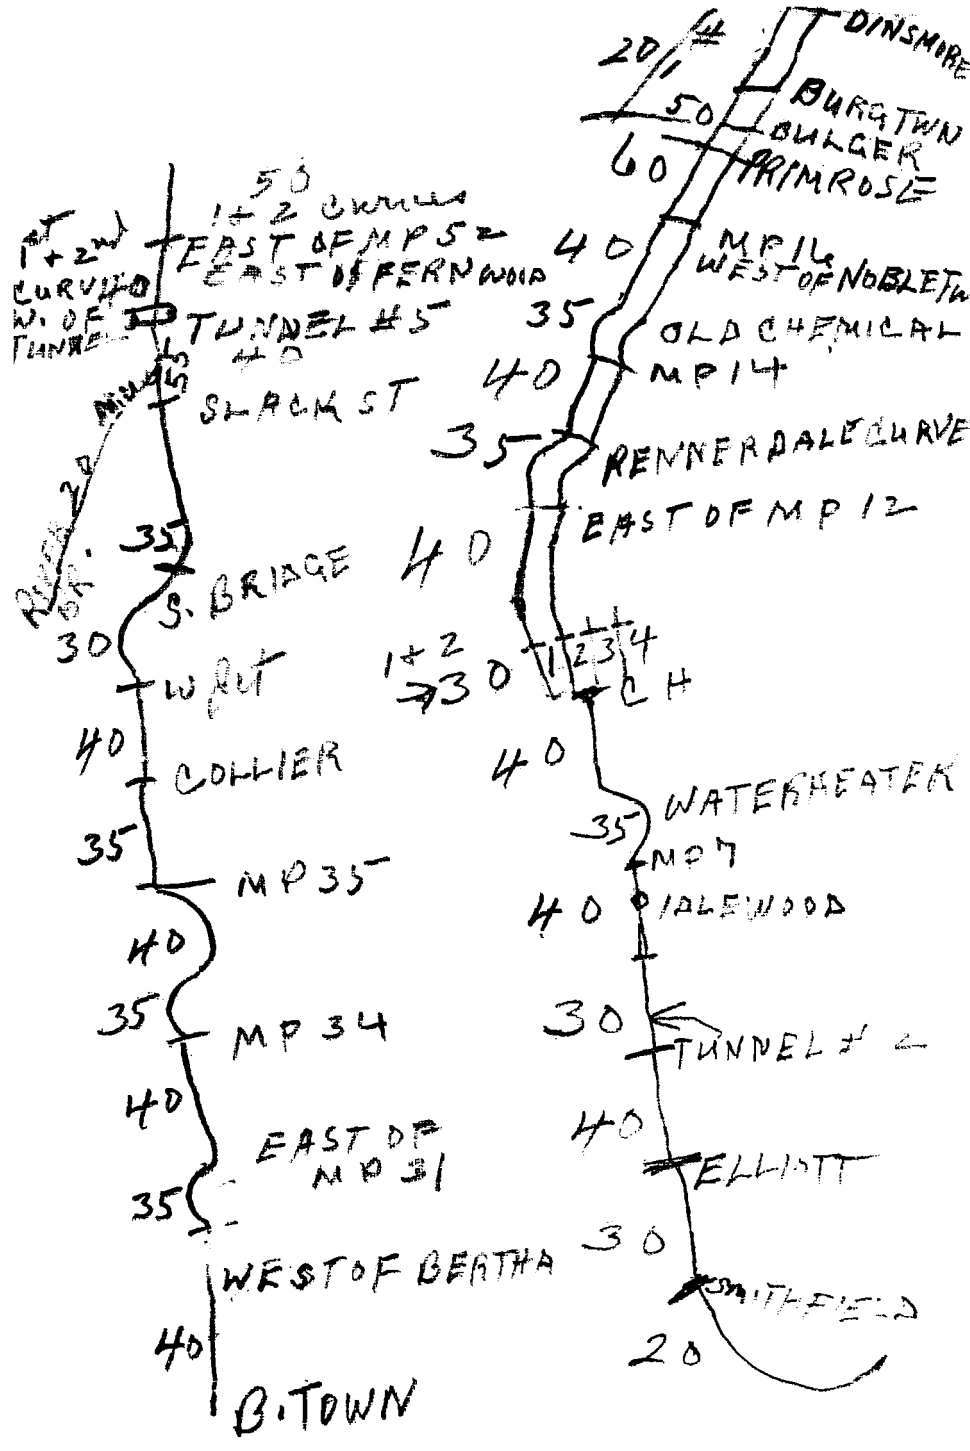 50
1+2 CURVES
EAST OF MP 52
EAST OF FERNWOOD
1ST + 2nd
CURV 40
W. OF
TUNNEL
TUNNEL #5
40
55
SLACK ST
RIVER 20
BR.
35
S. BRIDGE
30
40
COLLIER
35
MP 35
40
35
MP 34
40
EAST OF
MP 31
35
WEST OF BERTHA
40
B. TOWN
DINSMORE
20
#
BURGTWN
50
BULGER
60
PRIMROSE
40
MP 16
WEST OF NOBLETW
35
OLD CHEMICAL
40
MP 14
35
RENNERDALE CURVE
EAST OF MP 12
40
1+2
30
1 2 3 4
CH
40
WATERHEATER
35
MP 7
40
IDLEWOOD
30
TUNNEL #
40
ELLIOTT
30
SMITHFIELD
20